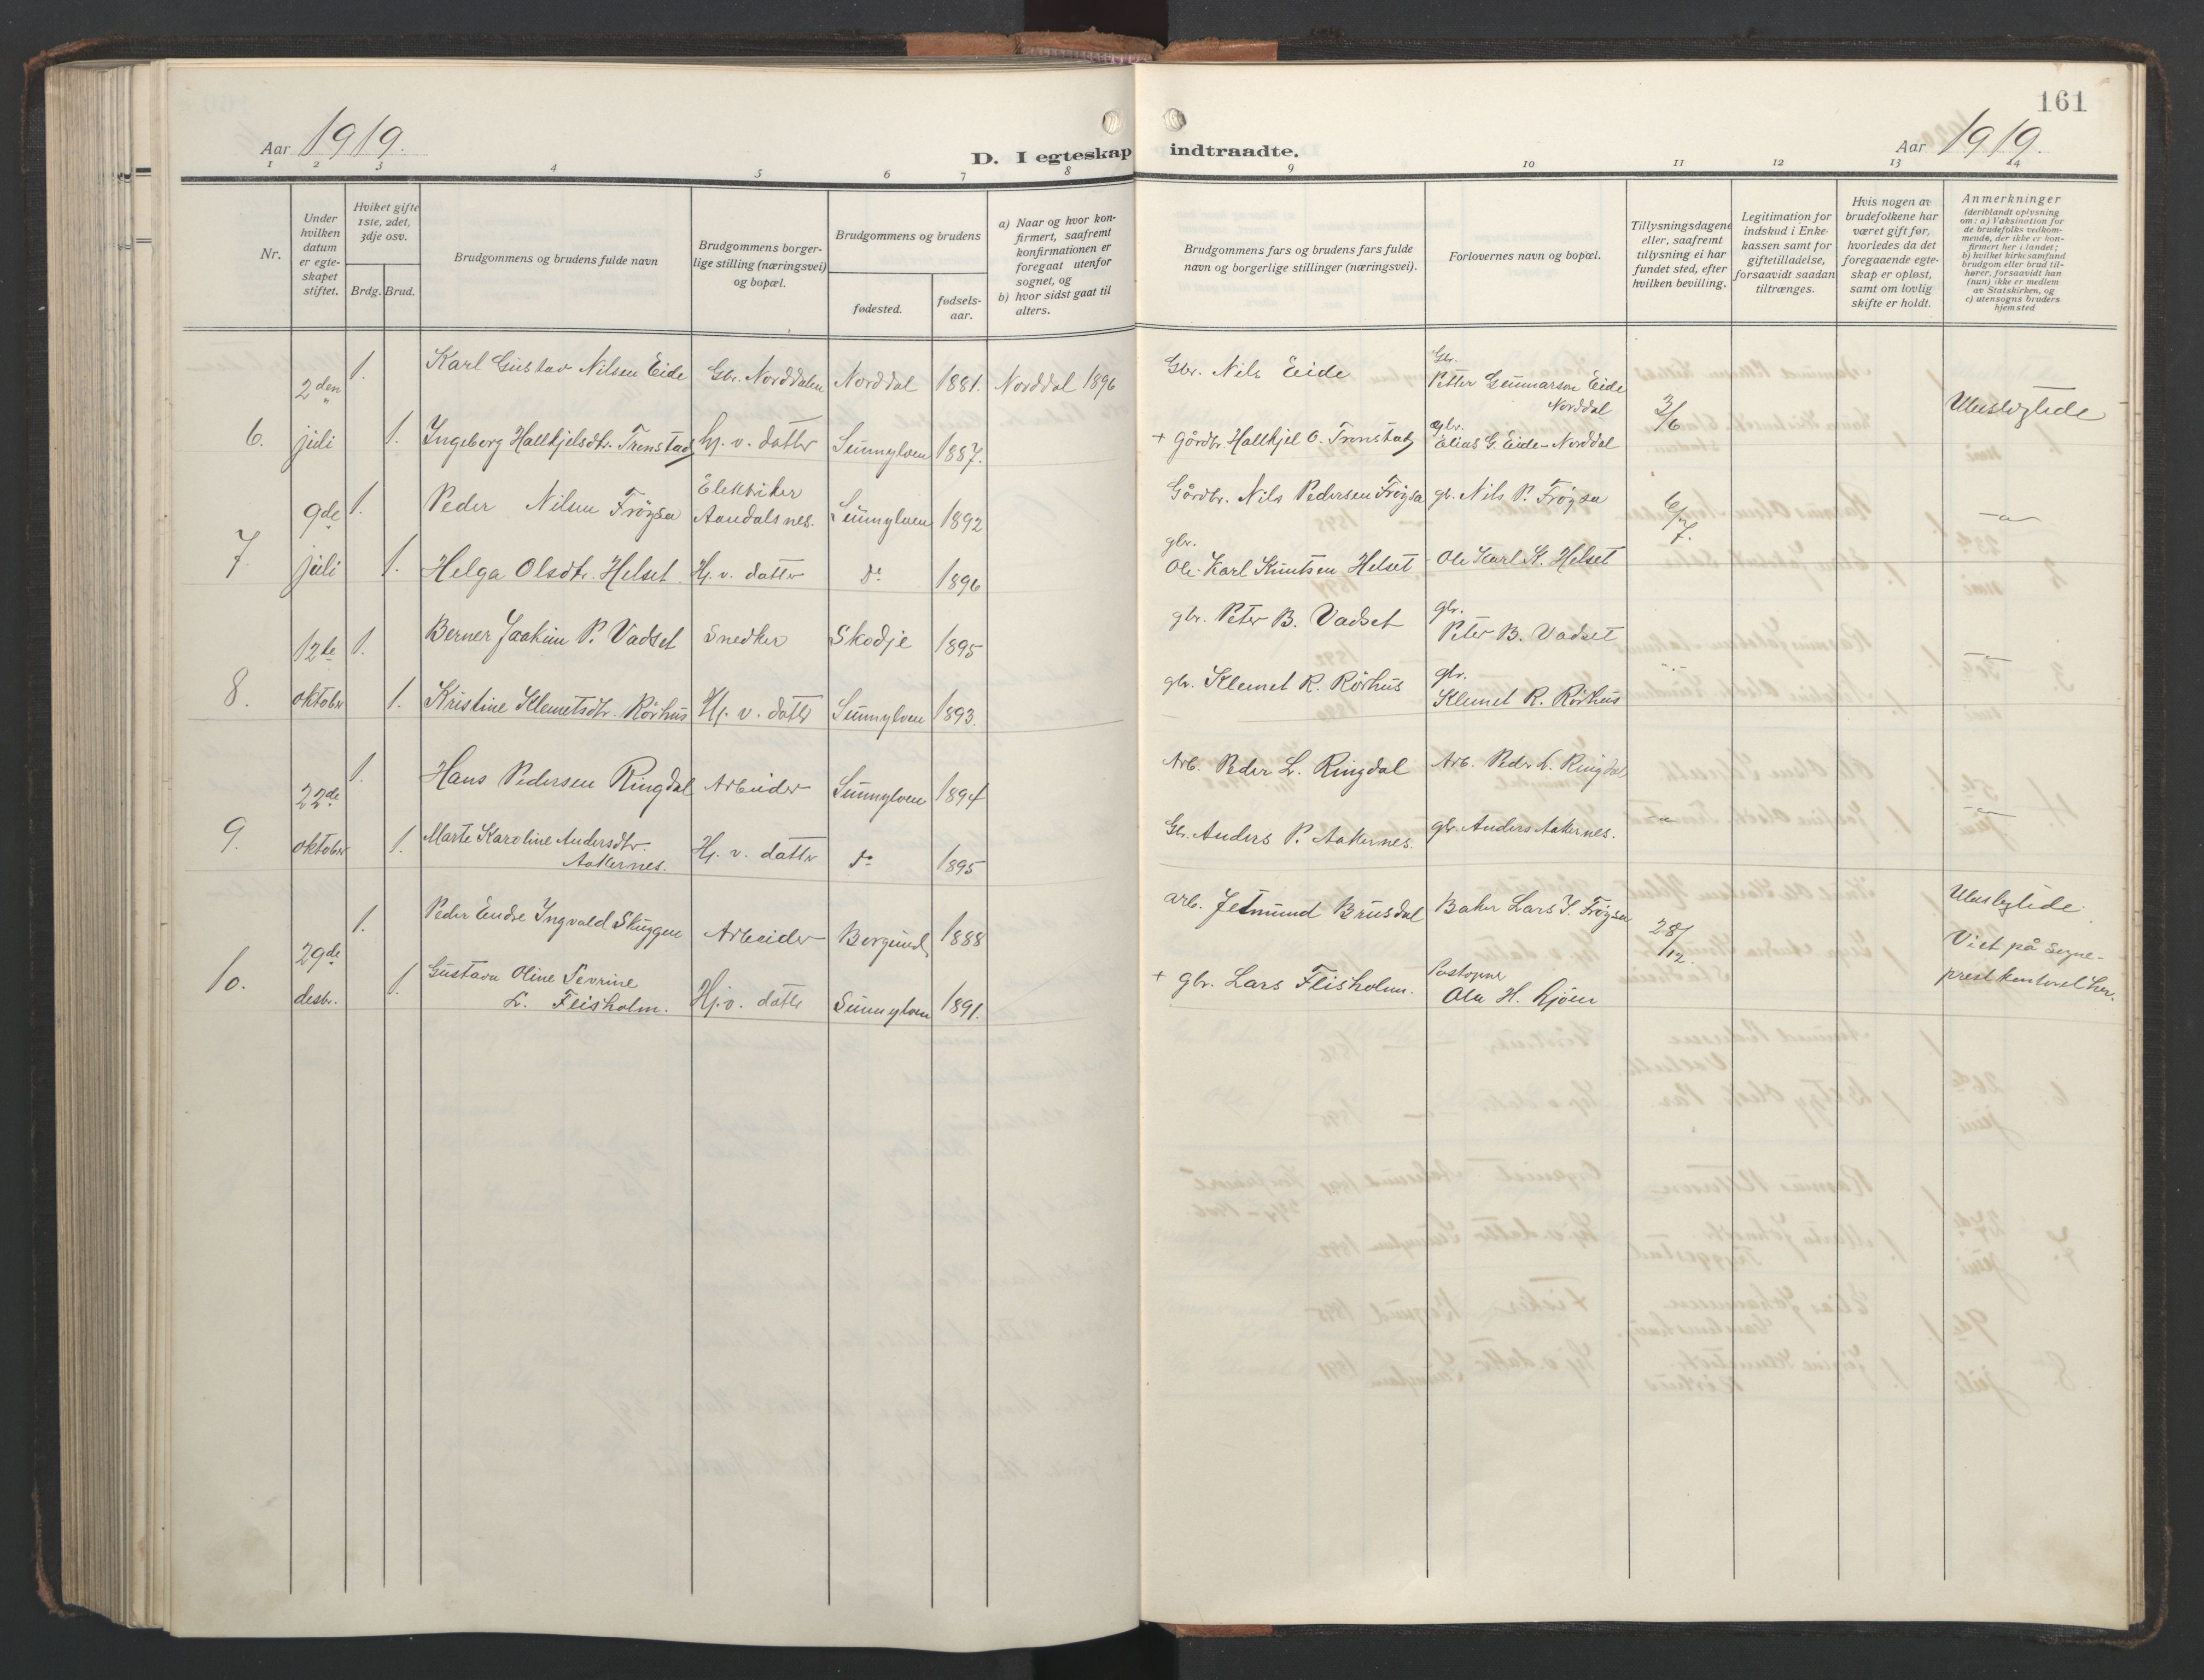 161
Aar 1919.
D. I egteskap indtraadte.
Aar 1919.
1 2 3 4 5 6 7 8 9 10 11 12 13 14
Nr.
Under hvilken datum er egteskapet stiftet.
Hviket gifte 1ste, 2det, 3dje osv.
Brdg. Brud.
Brudgommens og brudens fulde navn
Brudgommens borgerlige stilling (næringsvei) og bopæl.
Brudgommens og brudens
fødested.
fødselsaar.
a) Naar og hvor konfirmert, saafremt konfirmationen er foregaat utenfor sognet, og
b) hvor sidst gaat til alters.
Brudgommens fars og brudens fars fulde navn og borgerlige stillinger (næringsvei).
Forlovernes navn og bopæl.
Tillysningsdagene eller, saafremt tillysning ei har fundet sted, efter hvilken bevilling.
Legitimation for indskud i Enkekassen samt for giftetilladelse, forsaavidt saadan tiltrænges.
Hvis nogen av brudefolkene har været gift før, hvorledes da det foregaaende egteskap er opløst, samt om lovlig skifte er holdt.
Anmerkninger
(deriblandt oplysning om: a) Vaksination for de brudefolks vedkommende, der ikke er konfirmert her i landet; b) hvilket kirkesamfund brudgom eller brud tilhører, forsaavidt han (hun) ikke er medlem av Statskirken, og c) utensogns bruders hjemsted
2den 1. Karl Gustav Nilsen Eide Gbr. Norddalen Norddal 1881. Norddal 1896 Gbr. Nils Eide Gbr. Petter Gunnarson Eide Norddal 3/6 Ubeslegtede
6. juli 1. Ingeborg Hallkjelsdtr. Tronstad Hj. v. datter Sunnylven 1887. + Gårdbr. Hallkjel O. Tronstad gbr. Elias G. Eide - Norddal
9de 1. Peder Nilsen Frøysa Elektriker Aandalsnes. Sunnylven 1892 Gårdbr. Nils Pedersen Frøysa gb. Nils P. Frøysa 6/7. -"-
7 juli 1. Helga Olsdtr. Helset Hj. v. datter do 1896 gbr. Ole Karl Knutsen Helset Ole Karl K. Helset
12te 1. Berner Joakim P. Vadset Snedker Skodje 1895 gbr. Peter B. Vadset gbr. Peter B. Vadset
8. oktober 1. Kristine Klemetsdtr. Rørhus Hj. v. datter Sunnylven 1893. gbr. Klemet R. Rørhus gbr. Klemet R. Rørhus
22de 1. Hans Pedersen Ringdal Arbeider Sunnylven 1894 Arb. Peder L. Ringdal Arb. Peder L. Ringdal
9. oktober 1. Marte Karoline Andersdtr. Aakernes. Hj. v. datter do 1895 Gb. Anders P. Aakernes. gb. Anders Aakernes. -"-
29de 1. Peder Endre Ingvald Skuggen Arbeider Borgund 1888 arb. Jetmund Brusdal Baker Lars I. Frøysa 28/12. Ubeslegtede.
10. desbr. 1. Gustava Oline Sevrine L. Fleisholm. Hj. v. datter Sunnylven 1891. + gbr. Lars Fleisholm. Postopner Ola H. Ljøen Vist på sogneprestkontoret her.